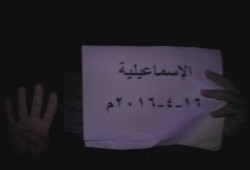 الإسماعيلية
١٦-٤-٢٠١٦م